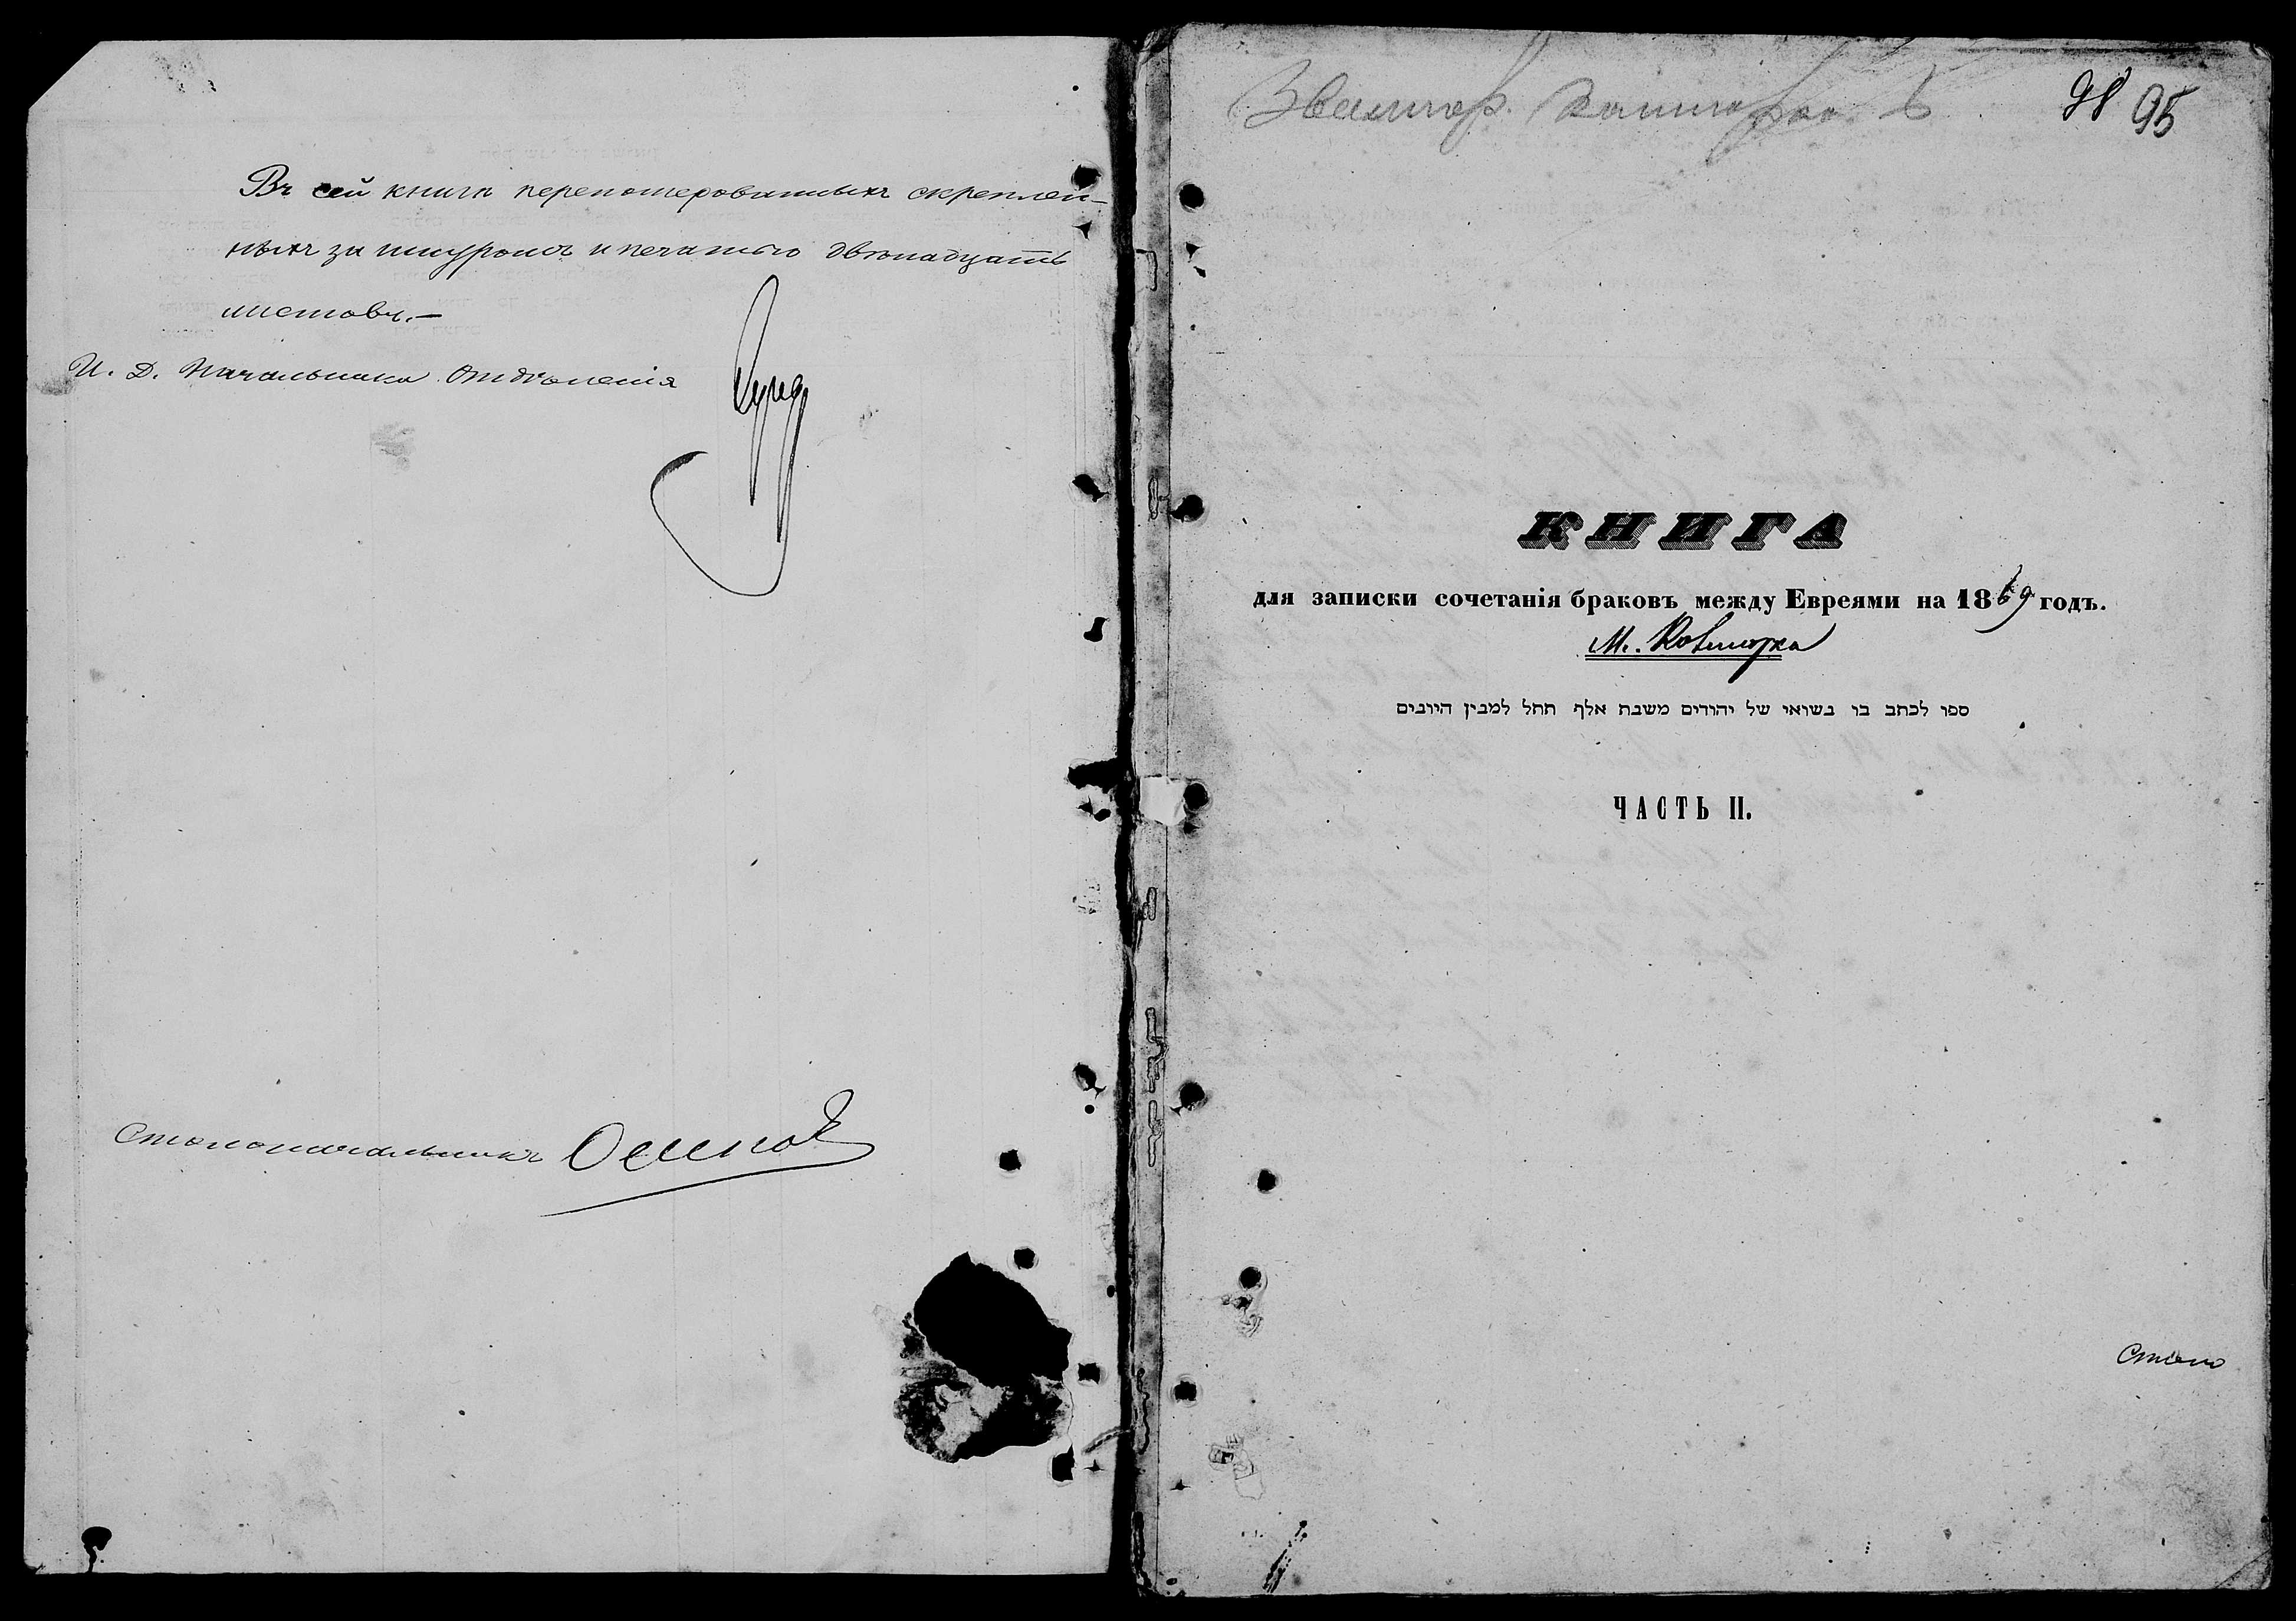 Въ сей книгѣ переномерованныхъ скреплен-
ныхъ за шнуромъ и печатью двѣнадцать
листовъ.—
И. Д. Начальника Отдѣленія
Столоначальникъ Осипов
98 95
КНИГА
для записки сочетанія браковъ между Евреями на 1869 годъ.
М.
ספר לכתב בו נשואי של יהודים משנת אלף תתל למנין היונים
ЧАСТЬ II.
Столо